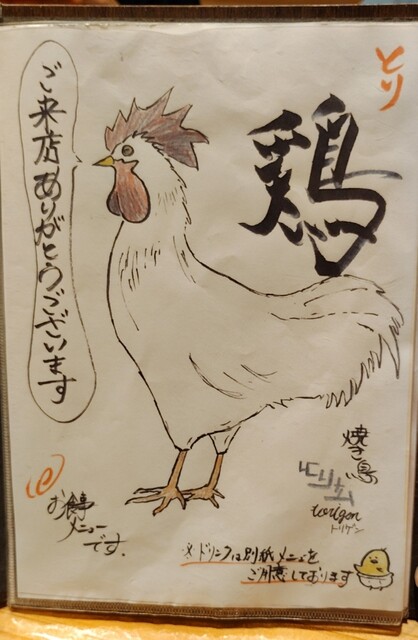 とり
鶏
ご来店ありがとうございます
焼き鳥
とりげん
torigen
トリゲン
お食事
メニュー
です.
※ドリンクは別紙メニューを
ご用意しております